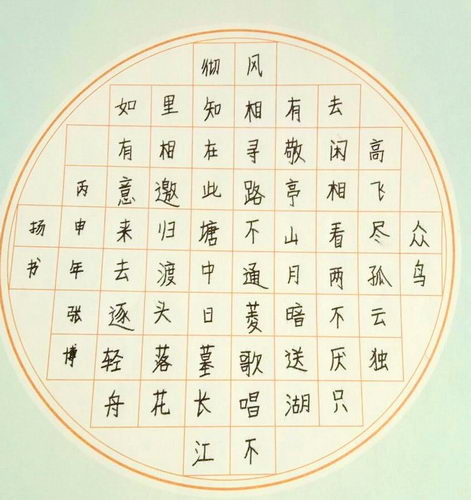 众鸟
高飞尽孤云独
去闲相看两不厌只
有敬亭山月暗送湖
风相寻路不通菱歌唱不
彻知在此塘中日墓长江
里相邀归渡头落花
如有意来去逐轻舟
丙申年张博
扬书